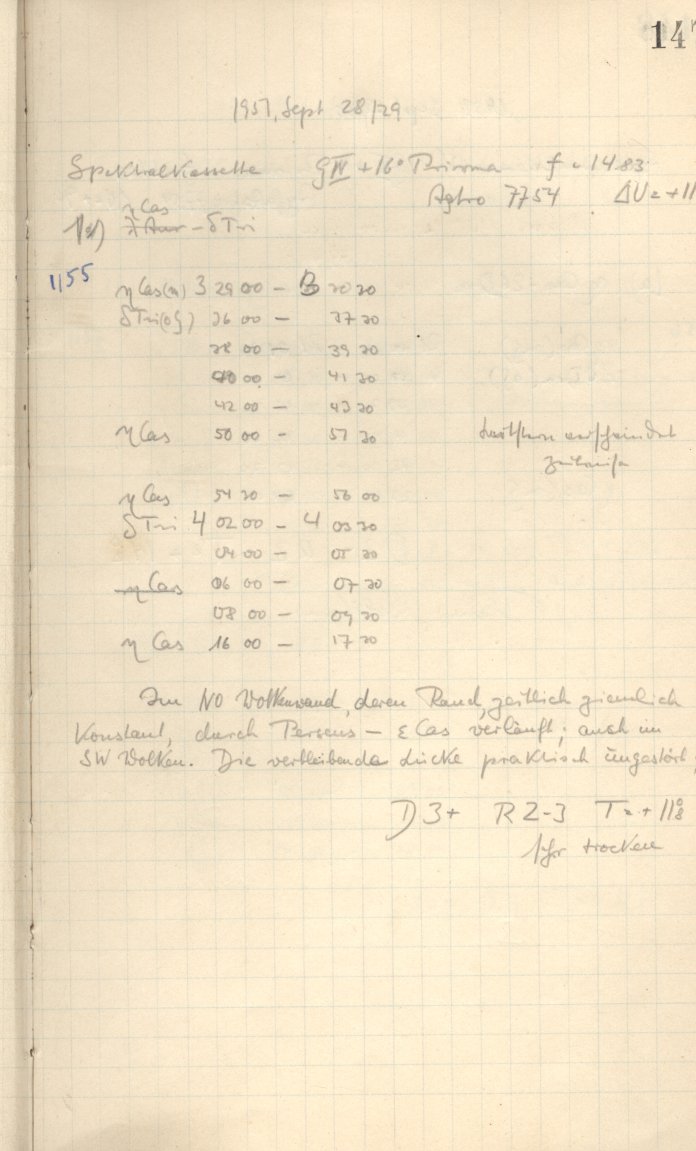 147
1951, Sept 28/29
Spektralkassette G IV +16° Prisma f = 14.83
Agfro 7754 ΔU = +11
η Cas
λ Aur - δ Tri
1155
η Cas(n) 3 29 00 - 3 30 30
δ Tri(og) 36 00 - 37 30
38 00 - 39 30
40 00 - 41 30
42 00 - 43 30
η Cas 50 00 - 51 30 Leitstern verschwindet
zeitweise
η Cas 54 30 - 56 00
δ Tri 4 02 00 - 4 03 30
04 00 - 05 30
η Cas 06 00 - 07 30
08 00 - 09 30
η Cas 16 00 - 17 30
Im NO Wolkenwand, deren Rand, zeitlich ziemlich
Konstant, durch Perseus - ε Cas verläuft; auch im
SW Wolken. Die verbleibende Lücke praktisch ungestört,
D 3+ R 2-3 T = +11°8
sehr trocken